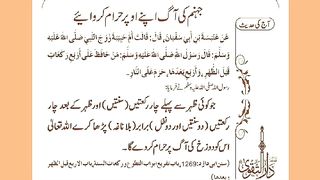 آج کی حدیث
جہنم کی آگ اپنے اوپر حرام کروائیے
عَنْ عَنْبَسَةَ بْنِ أَبِي سُفْيَانَ، قَالَ: قَالَتْ أُمُّ حَبِيبَةَ زَوْجُ النَّبِيِّ صَلَّى اللهُ عَلَيْهِ
وَسَلَّمَ: قَالَ رَسُولُ اللهِ صَلَّى اللهُ عَلَيْهِ وَسَلَّمَ: مَنْ حَافَظَ عَلَى أَرْبَعِ رَكَعَاتٍ
قَبْلَ الظُّهْرِ، وَأَرْبَعٍ بَعْدَهَا، حَرُمَ عَلَى النَّارِ.
رسول اللہ صلی اللہ علیہ وسلم نے فرمایا:
جو کوئی ظہر سے پہلے چار رکعتیں (سنتیں) اور ظہر کے بعد چار
رکعتیں (دو سنتیں اور دو نفل) برابر (بلاناغہ) پڑھا کرے اللہ تعالیٰ
اس کو دوزخ کی آگ پر حرام کر دے گا۔
(سنن ابی داؤد: 1269، باب تفریع ابواب التطوع ورکعات السنة، باب الاربع قبل الظهر
وبعدها)
دار التقویٰ